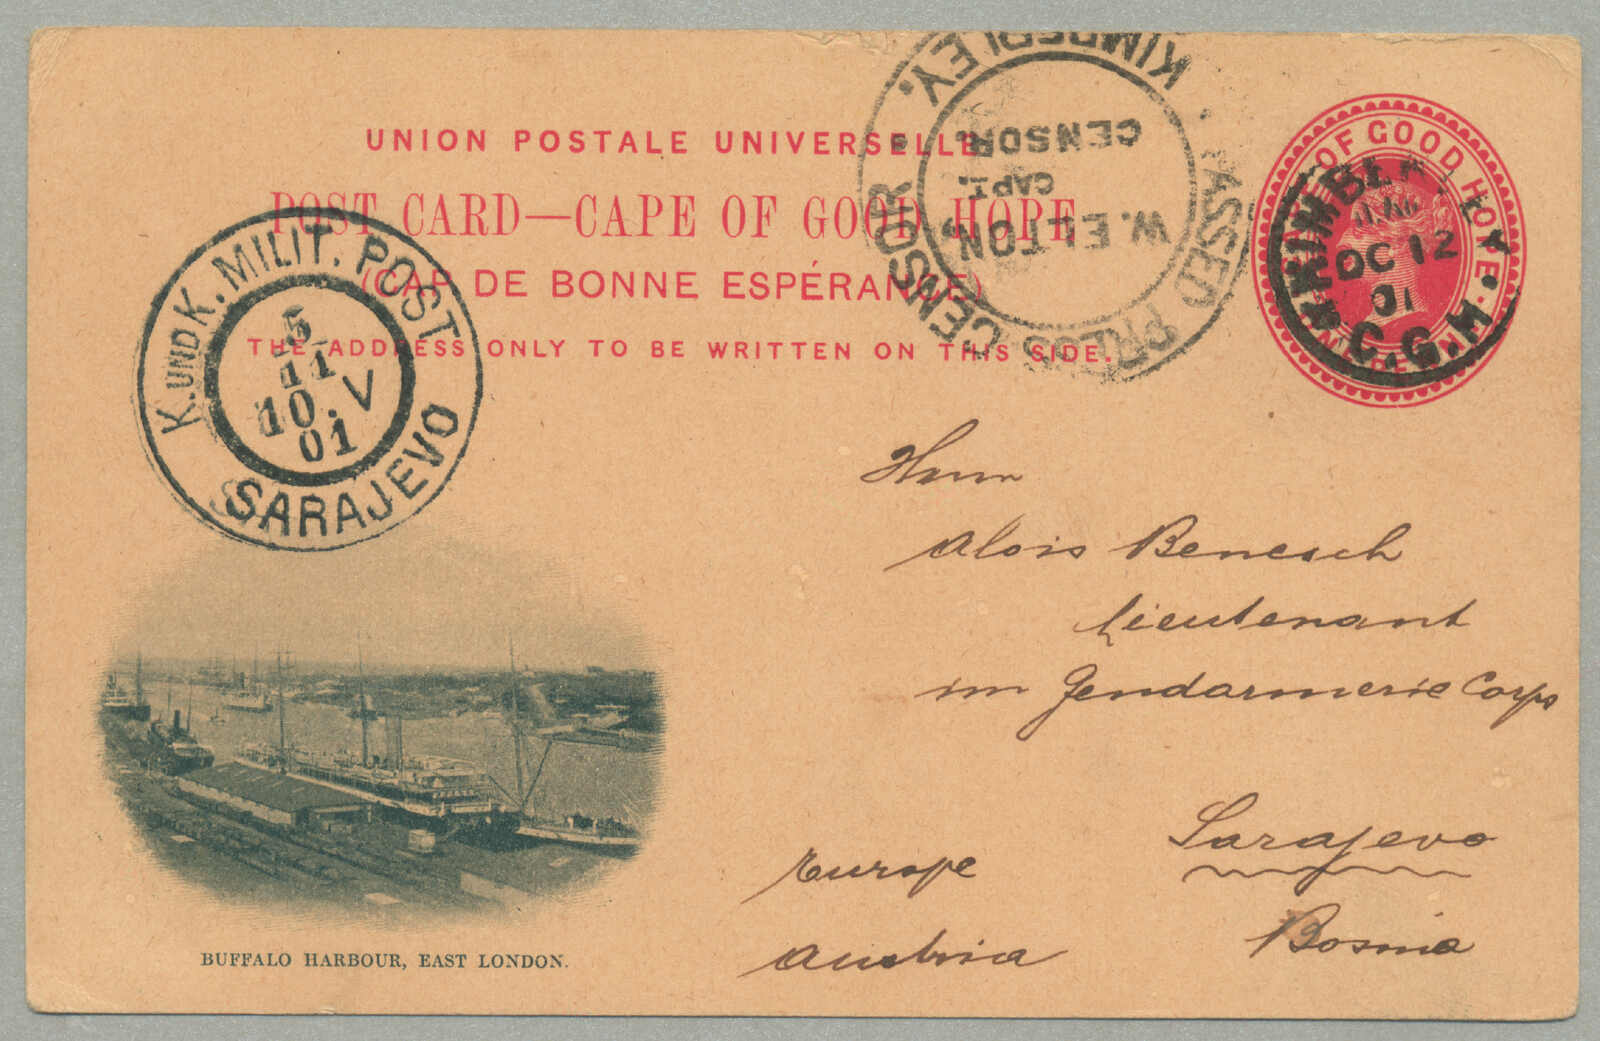 UNION POSTALE UNIVERSELLE
POST CARD—CAPE OF GOOD HOPE
(CAP DE BONNE ESPÉRANCE)
THE ADDRESS ONLY TO BE WRITTEN ON THIS SIDE.
PASSED PRESS CENSOR · KIMBERLEY.
W. ELTON,
CAPT.
CENSOR
CAPE OF GOOD HOPE · ONE PENNY
KIMBERLEY
DC 12
01
C.G.H.
K. UND K. MILIT. POST
5
11
10. V
01
SARAJEVO
Herrn
Alois Benesch
Lieutenant
im Gendarmerie Corps
Sarajevo
Europe
Bosnia
Austria
BUFFALO HARBOUR, EAST LONDON.